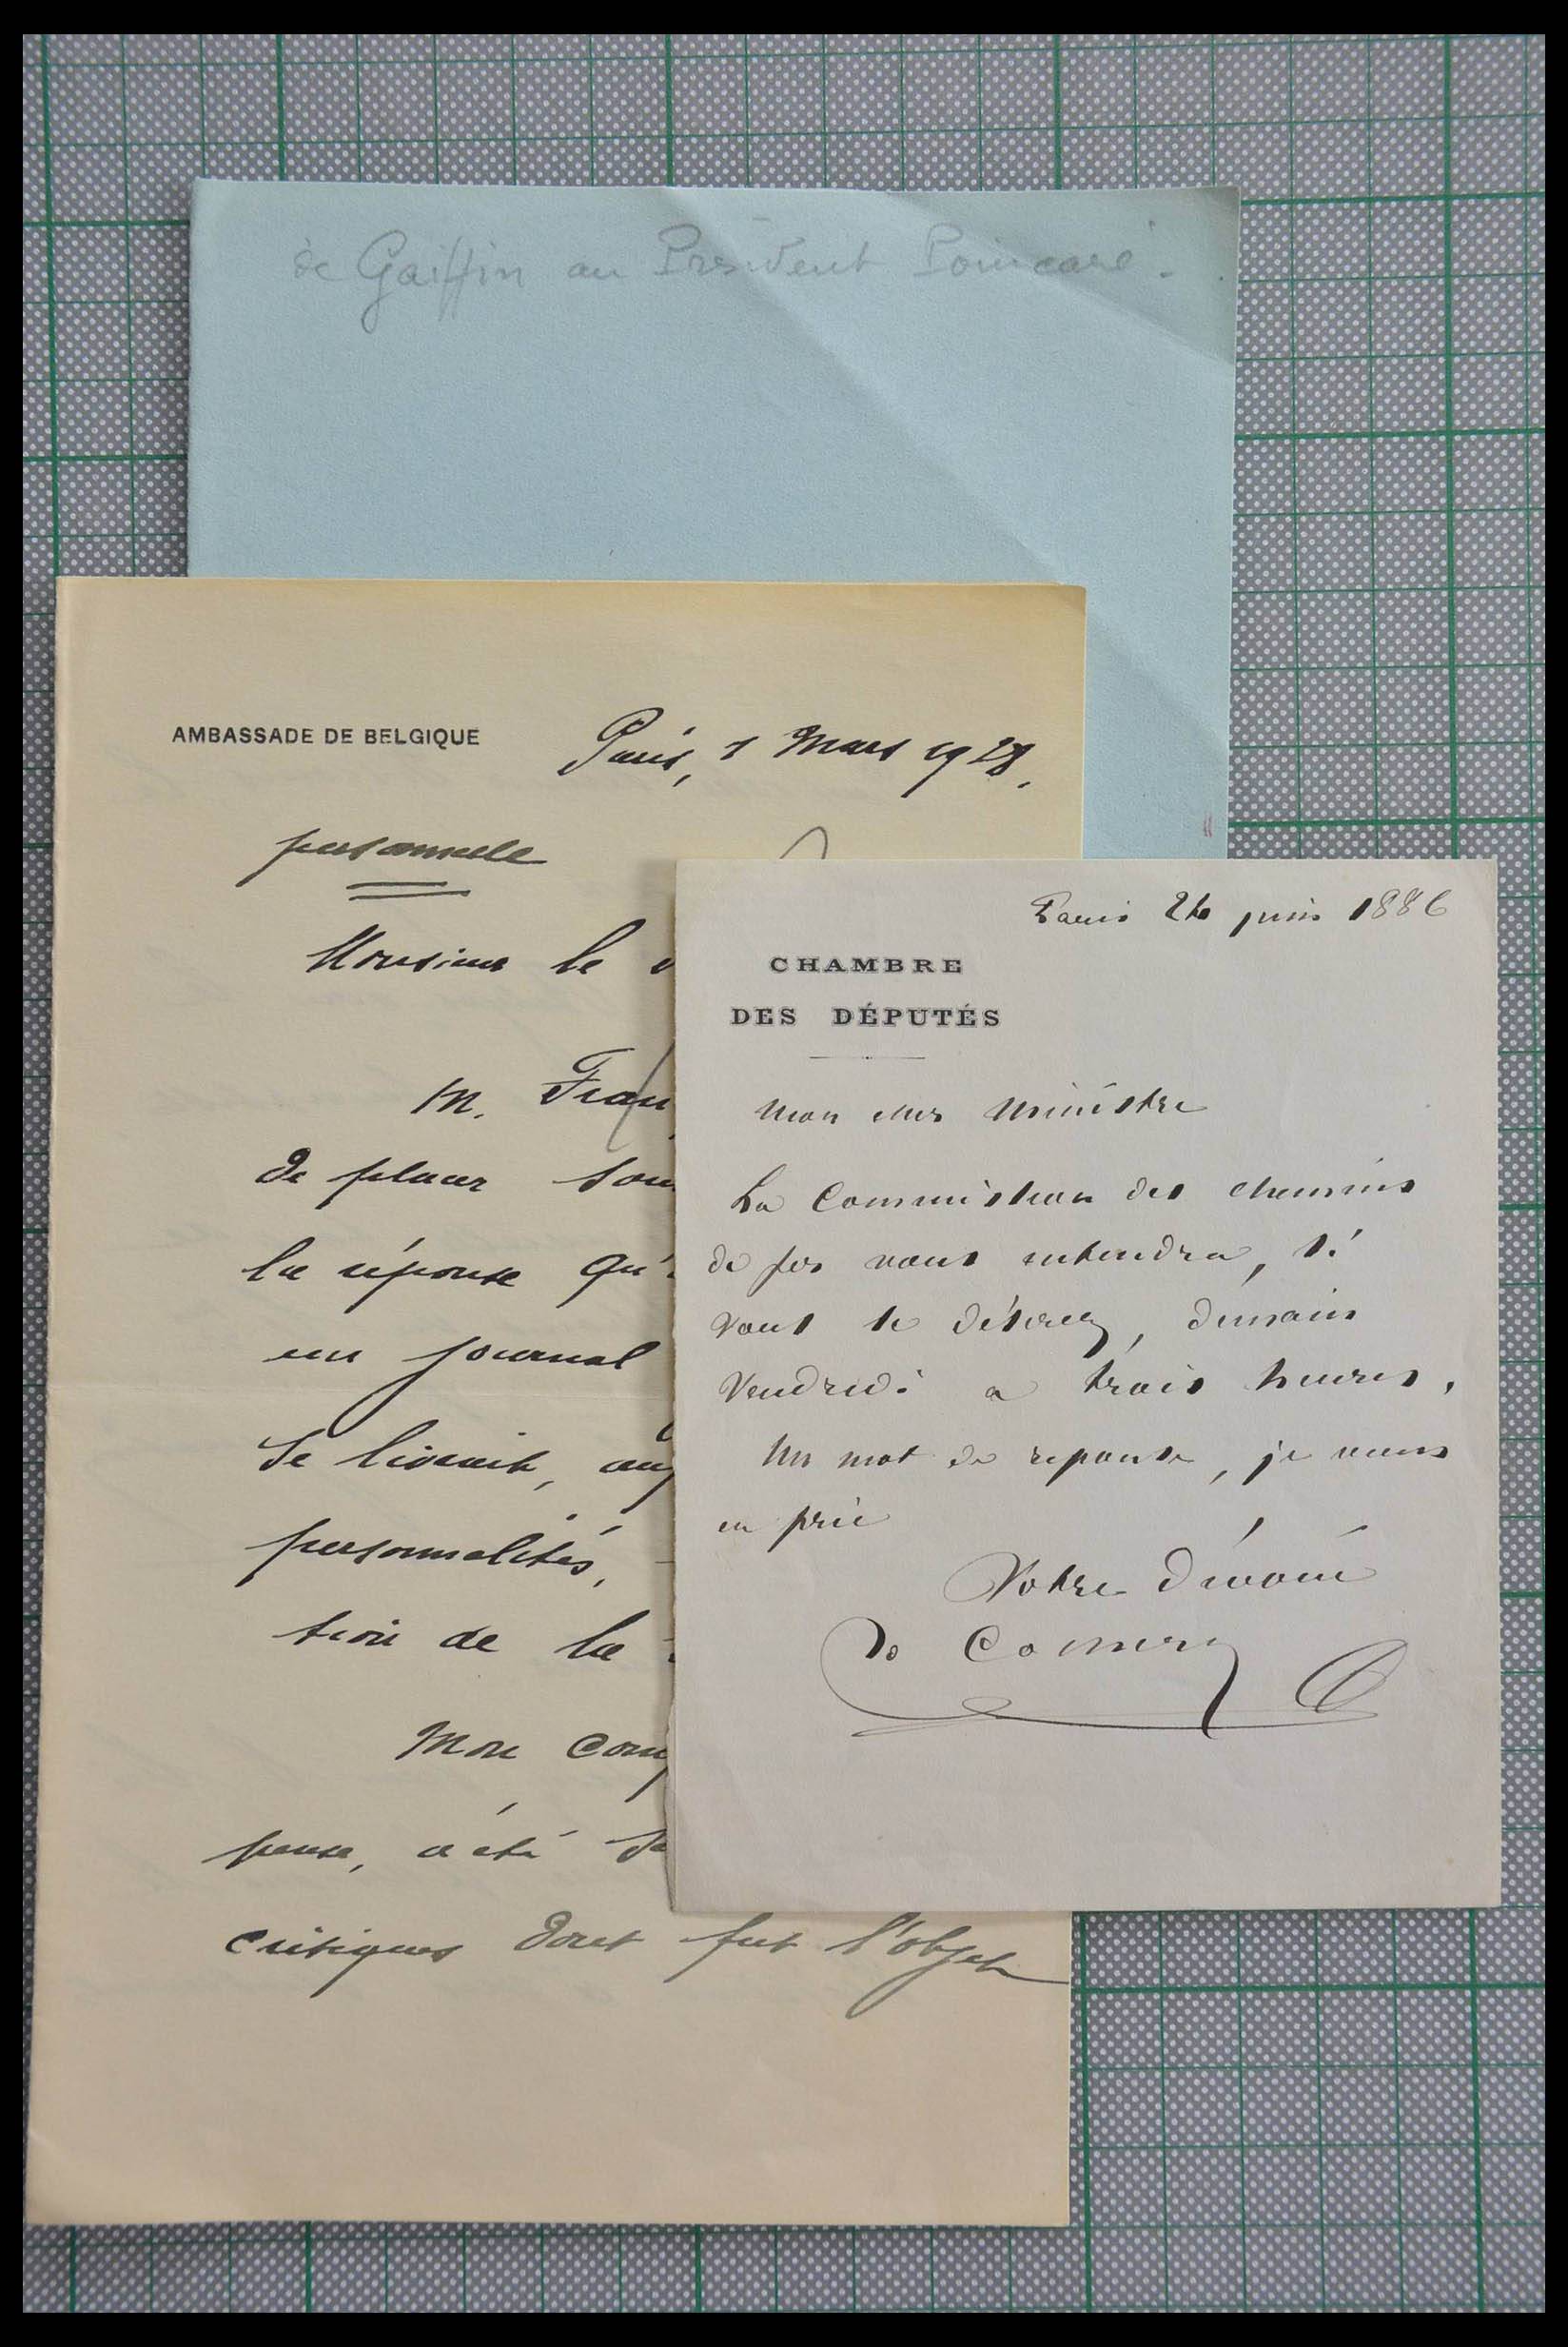 de Gaiffin au Président Poincaré.
AMBASSADE DE BELGIQUE
Paris, 1 Mars 1928.
personnelle
Monsieur le
M. Fran
de placer sou
la réponse qu'
un journal
se livrait, au
personnalités,
tion de la
Mon
pense, a été
critiques dont fut l'objet
Paris 24 juin 1886
CHAMBRE
DES DÉPUTÉS
Mon cher Ministre
La Commission des chemins
de fer vous entendra, si
vous le désirez, demain
Vendredi a trois heures.
Un mot de reponse, je vous
en prie
Votre dévoué